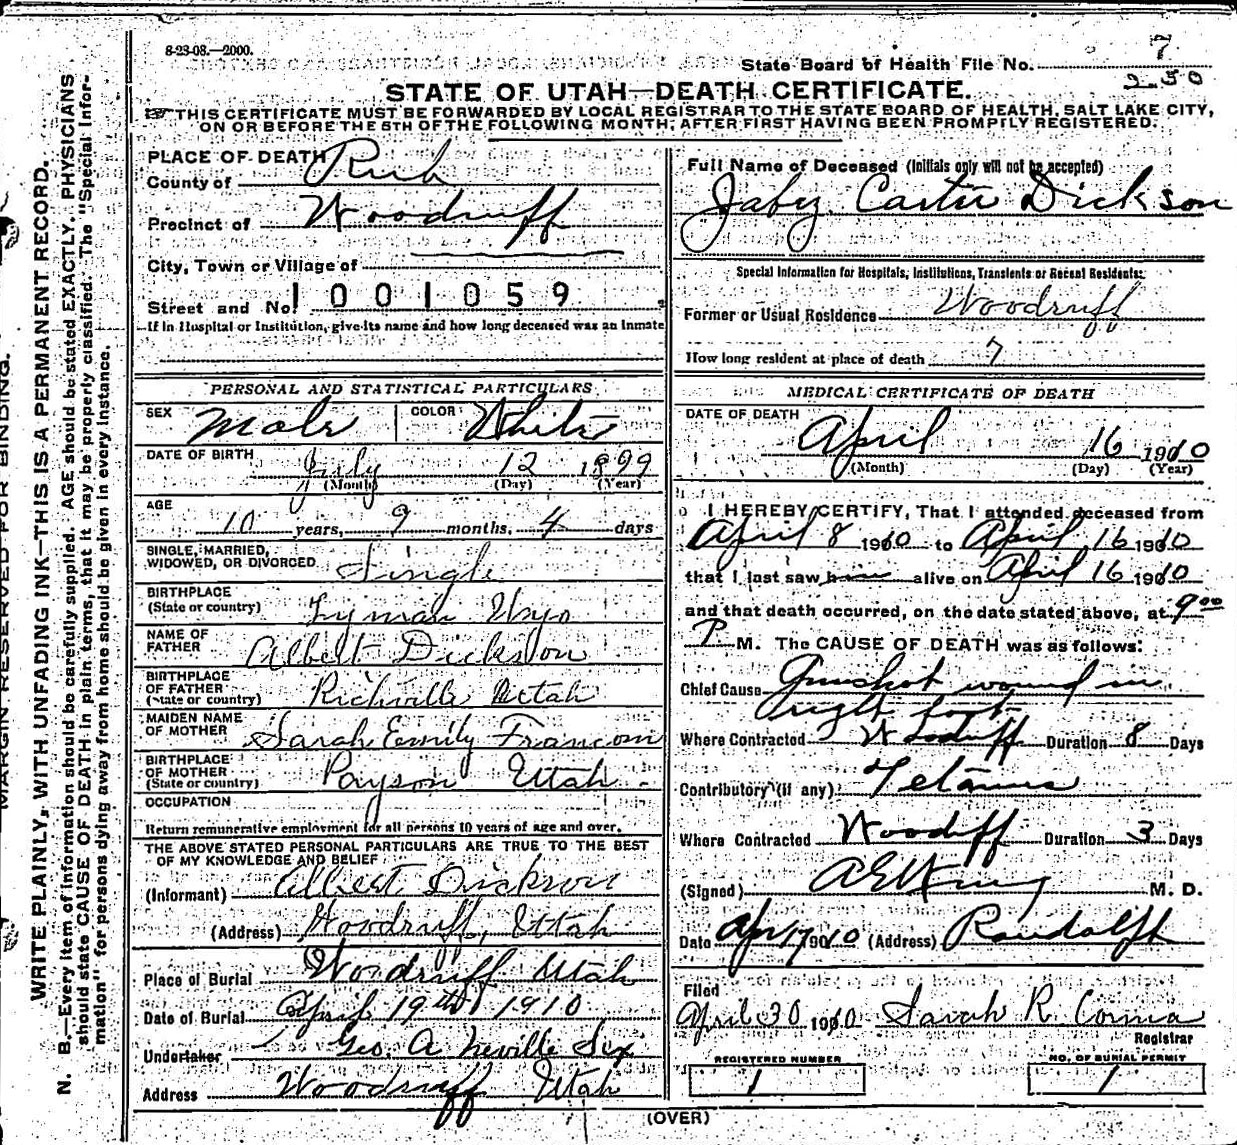 8-23-08.—2000.
State Board of Health File No. 7
230
STATE OF UTAH—DEATH CERTIFICATE.
THIS CERTIFICATE MUST BE FORWARDED BY LOCAL REGISTRAR TO THE STATE BOARD OF HEALTH, SALT LAKE CITY,
ON OR BEFORE THE 5TH OF THE FOLLOWING MONTH, AFTER FIRST HAVING BEEN PROMPTLY REGISTERED.
PLACE OF DEATH
County of Rich
Precinct of Woodruff
City, Town or Village of
Street and No. 1001059
If in Hospital or Institution, give its name and how long deceased was an inmate
PERSONAL AND STATISTICAL PARTICULARS
SEX Male COLOR White
DATE OF BIRTH July 12 1899
(Month) (Day) (Year)
AGE
10 years, 9 months, 4 days
SINGLE, MARRIED,
WIDOWED, OR DIVORCED Single
BIRTHPLACE
(State or country) Lyman Wyo
NAME OF
FATHER Albert Dickson
BIRTHPLACE
OF FATHER
(State or country) Richville Utah
MAIDEN NAME
OF MOTHER Sarah Emily Francom
BIRTHPLACE
OF MOTHER
(State or country) Payson Utah
OCCUPATION
Return remunerative employment for all persons 10 years of age and over.
THE ABOVE STATED PERSONAL PARTICULARS ARE TRUE TO THE BEST
OF MY KNOWLEDGE AND BELIEF
(Informant) Albert Dickson
(Address) Woodruff, Utah
Place of Burial Woodruff Utah
Date of Burial April 19th 1910
Undertaker Geo. A Neville Sex
Address Woodruff Utah
Full Name of Deceased (Initials only will not be accepted)
Jabez Carter Dickson
Special Information for Hospitals, Institutions, Transients or Recent Residents:
Former or Usual Residence Woodruff
How long resident at place of death 7
MEDICAL CERTIFICATE OF DEATH
DATE OF DEATH
April 16 1910
(Month) (Day) (Year)
I HEREBY CERTIFY, That I attended deceased from
April 8 1910 to April 16 1910
that I last saw him alive on April 16 1910
and that death occurred, on the date stated above, at 9 00
P M. The CAUSE OF DEATH was as follows:
Chief Cause Gunshot wound in
right foot
Where Contracted Woodruff Duration 8 Days
Contributory (if any) Tetanus
Where Contracted Woodruff Duration 3 Days
(Signed) M. D.
Date Apr 17 1910 (Address) Randolff
Filed
April 30 1910 Sarah R. Cornia
Registrar
REGISTERED NUMBER
1
NO. OF BURIAL PERMIT
1
(OVER)
MARGIN RESERVED FOR BINDING.
WRITE PLAINLY, WITH UNFADING INK—THIS IS A PERMANENT RECORD.
N. B.—Every item of information should be carefully supplied. AGE should be stated EXACTLY. PHYSICIANS
should state CAUSE OF DEATH in plain terms, that it may be properly classified. The "Special Infor-
mation" for persons dying away from home should be given in every instance.